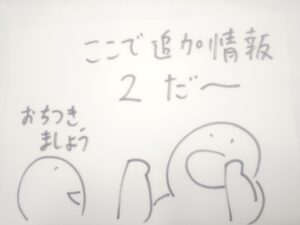 ここで追加情報
2 だ〜
おちつき
ましょう